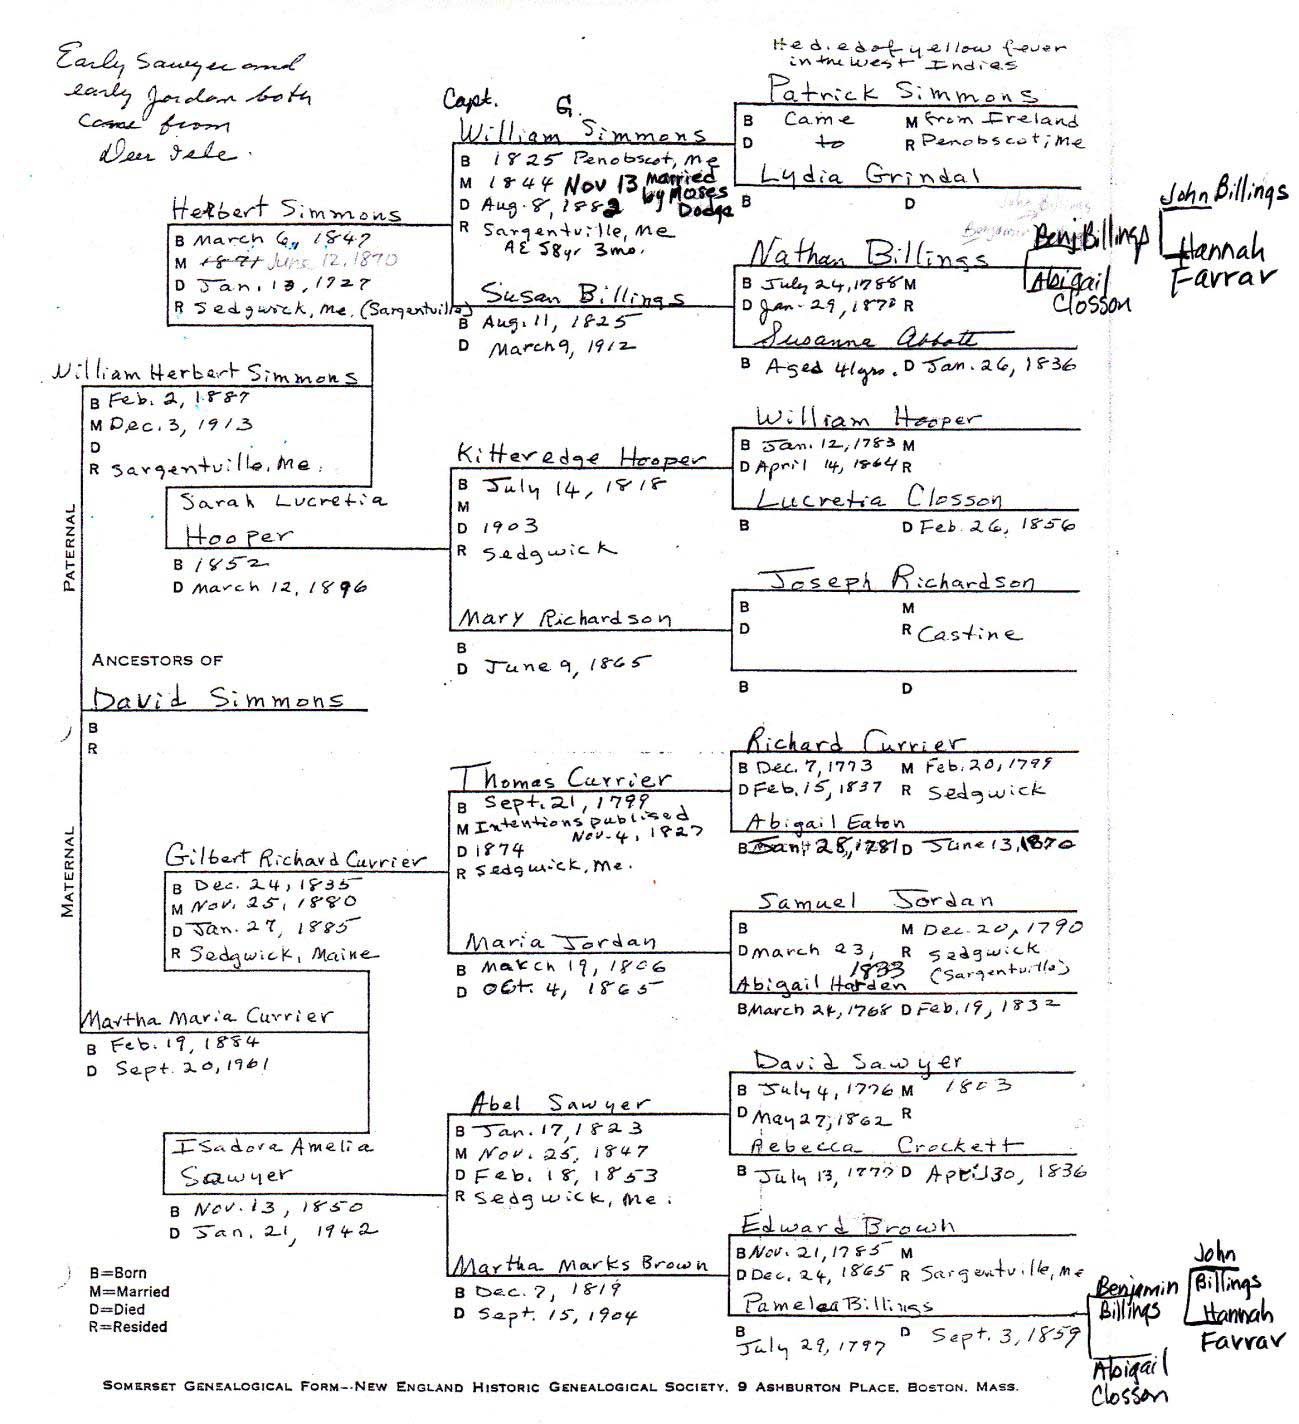 Early Sawyer and
early Jordan both
came from
Deer Isle.
He died of yellow fever
in the West Indies
Patrick Simmons
B Came M from Ireland
D to R Penobscot, Me
Lydia Grindal
B D
Capt. G.
William Simmons
B 1825 Penobscot, Me
M 1844 Nov 13 married by Moses Dodge
D Aug. 8, 1882
R Sargentville, Me
AE 58yr 3mo.
Susan Billings
B Aug. 11, 1825
D March 9, 1912
John Billings
Benjamin
Nathan Billings
B July 24, 1788 M
D Jan. 29, 1878 R
Susanna Abbott
B Aged 41 yrs. D Jan. 26, 1836
Benj Billings
Abigail
Closson
John Billings
Hannah
Farrar
Herbert Simmons
B March 6, 1847
M 1871 June 12, 1870
D Jan. 13, 1927
R Sedgwick, Me. (Sargentville)
William Herbert Simmons
B Feb. 2, 1887
M Dec. 3, 1913
D
R Sargentville, Me.
Sarah Lucretia
Hooper
B 1852
D March 12, 1896
Kitteredge Hooper
B July 14, 1818
M
D 1903
R Sedgwick
Mary Richardson
B
D June 9, 1865
William Hooper
B Jan. 12, 1783 M
D April 14, 1864 R
Lucretia Closson
B D Feb. 26, 1856
Joseph Richardson
B M
D R Castine
B D
PATERNAL
ANCESTORS OF
David Simmons
B
R
MATERNAL
Thomas Currier
B Sept. 21, 1799
M Intentions publised
Nov. 4, 1827
D 1874
R Sedgwick, Me.
Maria Jordan
B March 19, 1806
D Oct. 4, 1865
Richard Currier
B Dec. 7, 1773 M Feb. 20, 1799
D Feb. 15, 1837 R Sedgwick
Abigail Eaton
B Jan. 28, 1781 D June 13, 1870
Samuel Jordan
B M Dec. 20, 1790
D March 23, 1833 R Sedgwick
(Sargentville)
Abigail Harden
B March 24, 1768 D Feb. 19, 1832
Gilbert Richard Currier
B Dec. 24, 1835
M Nov. 25, 1880
D Jan. 27, 1885
R Sedgwick, Maine
Martha Maria Currier
B Feb. 19, 1884
D Sept. 20, 1961
Isadora Amelia
Sawyer
B Nov. 13, 1850
D Jan. 21, 1942
Abel Sawyer
B Jan. 17, 1823
M Nov. 25, 1847
D Feb. 18, 1853
R Sedgwick, Me.
Martha Marks Brown
B Dec. 7, 1819
D Sept. 15, 1904
David Sawyer
B July 4, 1776 M 1803
D May 27, 1862 R
Rebecca Crockett
B July 13, 1777 D April 30, 1836
Edward Brown
B Nov. 21, 1785 M
D Dec. 24, 1865 R Sargentville, Me
Pamelea Billings
B July 29, 1797 D Sept. 3, 1859
Benjamin
Billings
Abigail
Closson
John
Billings
Hannah
Farrar
B=Born
M=Married
D=Died
R=Resided
SOMERSET GENEALOGICAL FORM--NEW ENGLAND HISTORIC GENEALOGICAL SOCIETY, 9 ASHBURTON PLACE, BOSTON, MASS.